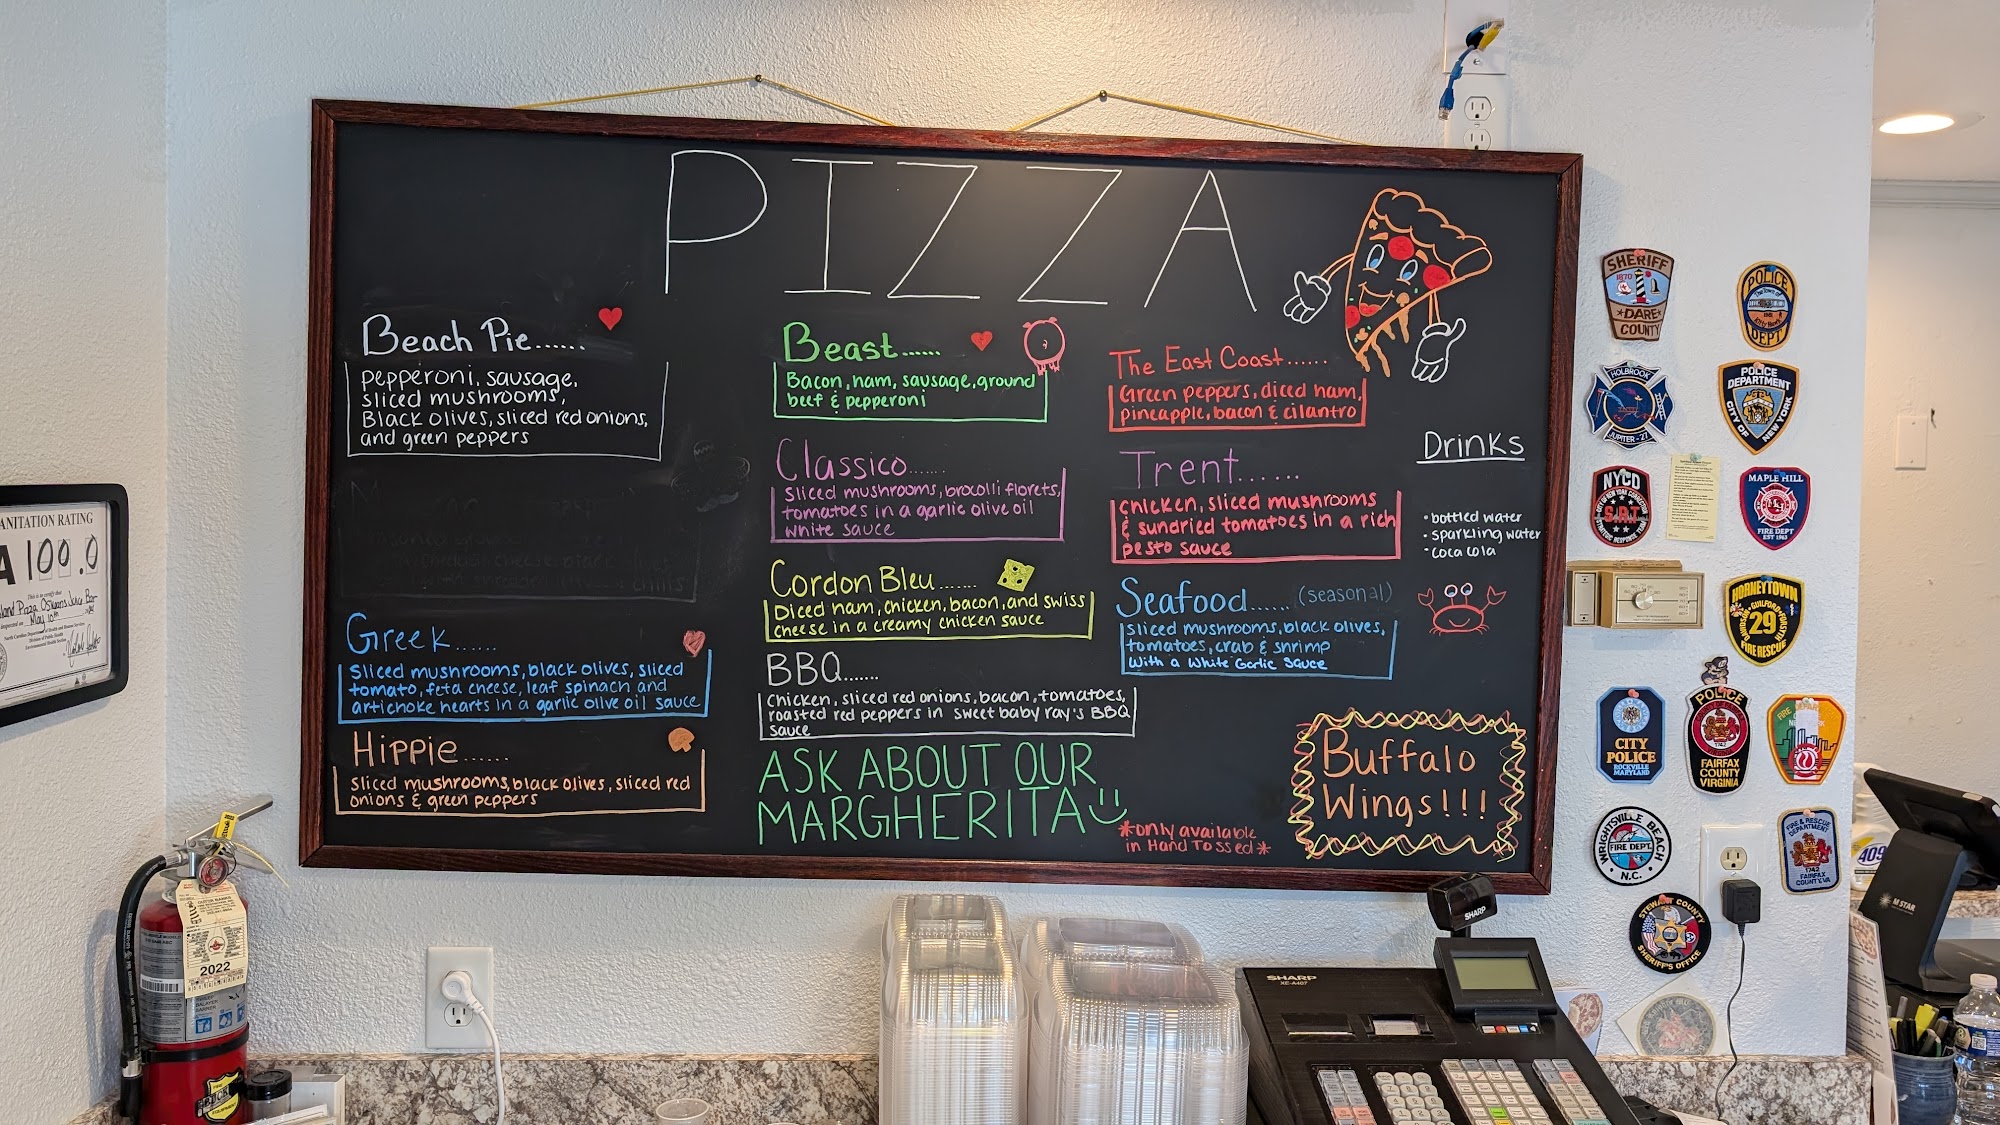 PIZZA
Beach Pie......
pepperoni, sausage,
sliced mushrooms,
Black olives, sliced red onions,
and green peppers
Greek......
Sliced mushrooms, black olives, sliced
tomato, feta cheese, leaf spinach and
artichoke hearts in a garlic olive oil sauce
Hippie......
Sliced mushrooms, black olives, sliced red
onions & green peppers
Beast......
Bacon, ham, sausage, ground
beef & pepperoni
Classico.......
Sliced mushrooms, brocolli florets,
tomatoes in a garlic olive oil
white sauce
Cordon Bleu.......
Diced ham, chicken, bacon, and swiss
cheese in a creamy chicken sauce
BBQ.......
Chicken, sliced red onions, bacon, tomatoes,
roasted red peppers in sweet baby ray's BBQ
sauce
ASK ABOUT OUR
MARGHERITA
*only available
in Hand Tossed*
The East Coast......
Green peppers, diced ham,
pineapple, bacon & cilantro
Trent......
Chicken, sliced mushrooms
& sundried tomatoes in a rich
pesto sauce
Seafood...... (seasonal)
Sliced mushrooms, black olives,
tomatoes, crab & shrimp
With a White Garlic Sauce
Drinks
• bottled water
• sparkling water
• coca cola
Buffalo
Wings!!!
ANITATION RATING
A 100.0
May 10th
2022
SHERIFF
1870
DARE
COUNTY
POLICE
Kitty Hawk
DEPT
HOLBROOK
JUPITER-27
POLICE
DEPARTMENT
CITY OF NEW YORK
NYCD
S.R.T
MAPLE HILL
FIRE DEPT
EST 1963
HORNEYTOWN
DAVIDSON GUILFORD FORSYTH
29
FIRE RESCUE
CITY
POLICE
ROCKVILLE
MARYLAND
POLICE
1742
FAIRFAX
COUNTY
VIRGINIA
WRIGHTSVILLE BEACH
FIRE DEPT.
N.C.
FIRE & RESCUE
DEPARTMENT
1742
FAIRFAX
COUNTY, VA
STEWART COUNTY
SHERIFF'S OFFICE
SHARP
SHARP
XE-A407
M STAR
409